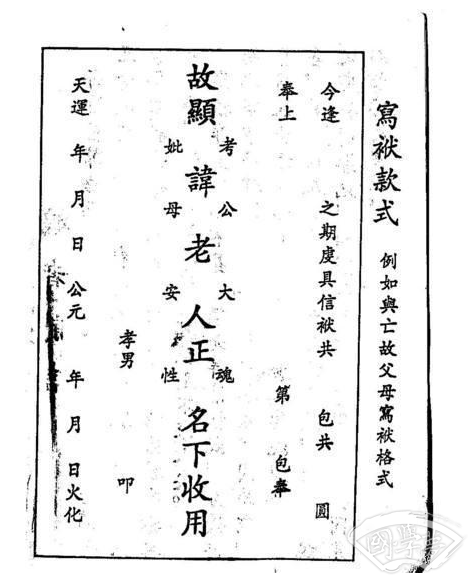 寫袱款式 例如與亡故父母寫袱格式
今逢 之期虔具信袱共 包共 圓
奉上 第 包奉
考 公 大 魂
故顯 諱 老 人正 名下收用
妣 母 安 性
孝男 叩
天運 年 月 日 公元 年 月 日火化
國學